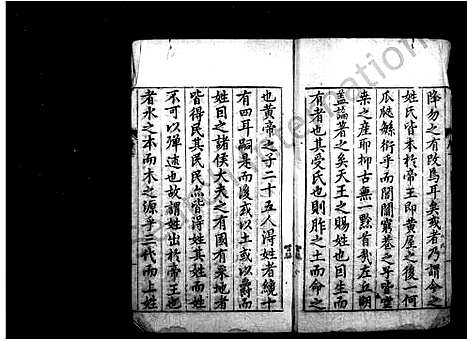 降勿之有改焉耳矣或者乃謂今之
姓氏皆本於帝王即黃屋之後一何
瓜瓞綿衍乎而閭閻窮巷之子豈空
桑之產耶抑古無一黔首哉左丘明
蓋論著之矣天王之賜姓也因生而
有者也其受氏也則胙之土而命之
也黃帝之子二十五人得姓者纔十
有四耳嗣是而後或以土或以爵而
姓目之諸侯大夫之有國有采地者
皆得民其民民亦皆得姓其姓而
不可以殫述也故謂姓出於帝王也
者水之本而木之源乎三代而上姓